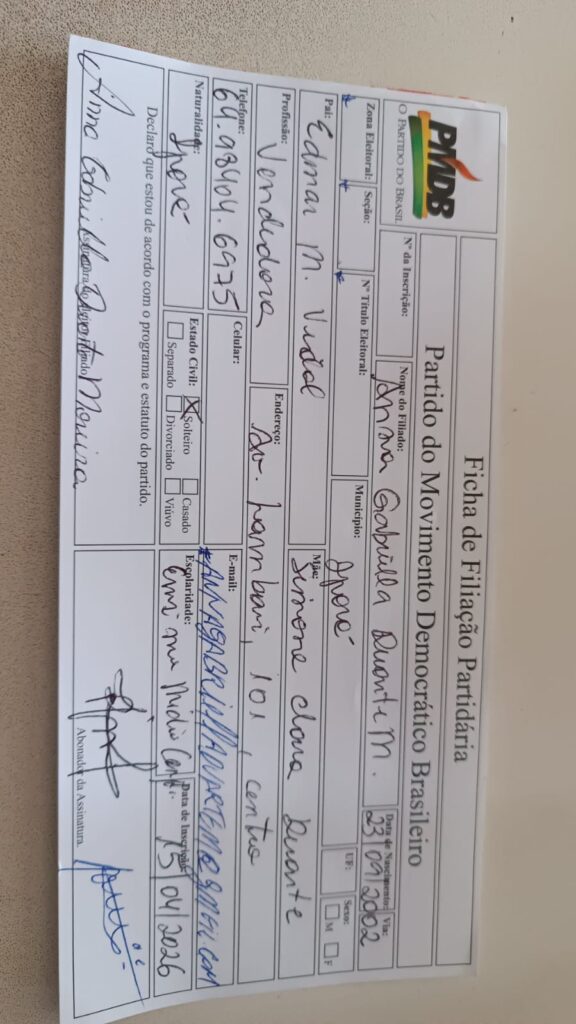 PMDB
O PARTIDO DO BRASIL
Ficha de Filiação Partidária
Partido do Movimento Democrático Brasileiro
Nº da Inscrição:
Nome do Filiado: Anna Gabriella Duarte M.
Data de Nascimento: 23/09/2002
Via:
Zona Eleitoral:
Seção:
Nº Título Eleitoral:
Município: Iporé
UF:
Sexo: M F
Pai: Edmar M. Vidal
Mãe: Simone Duarte
Profissão: Vendedora
Endereço: Av. Lambari, 101, centro
Telefone: 64.98404.6975
Celular:
E-mail:
Naturalidade: Iporé
Estado Civil: X Solteiro Casado
Separado Divorciado Viúvo
Escolaridade: Médio
Data de Inscrição: 15/04/2026
Declaro que estou de acordo com o programa e estatuto do partido.
Anna Gabriella Duarte Moreira
Abonador da Assinatura.